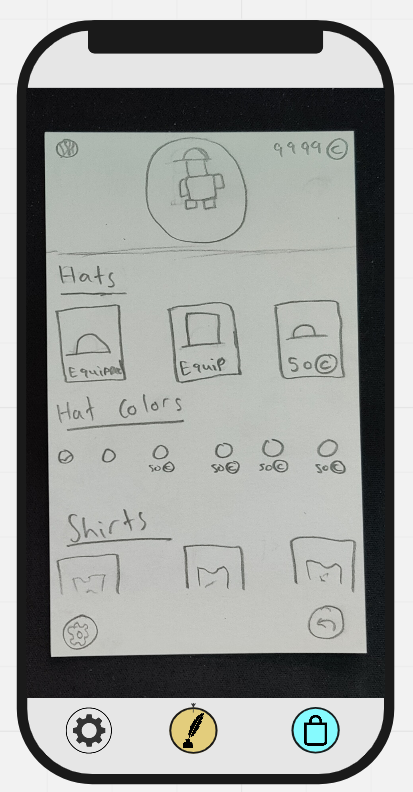 9999 C
Hats
Equipped Equip 50 C
Hat Colors
50 C 50 C 50 C 50 C
Shirts